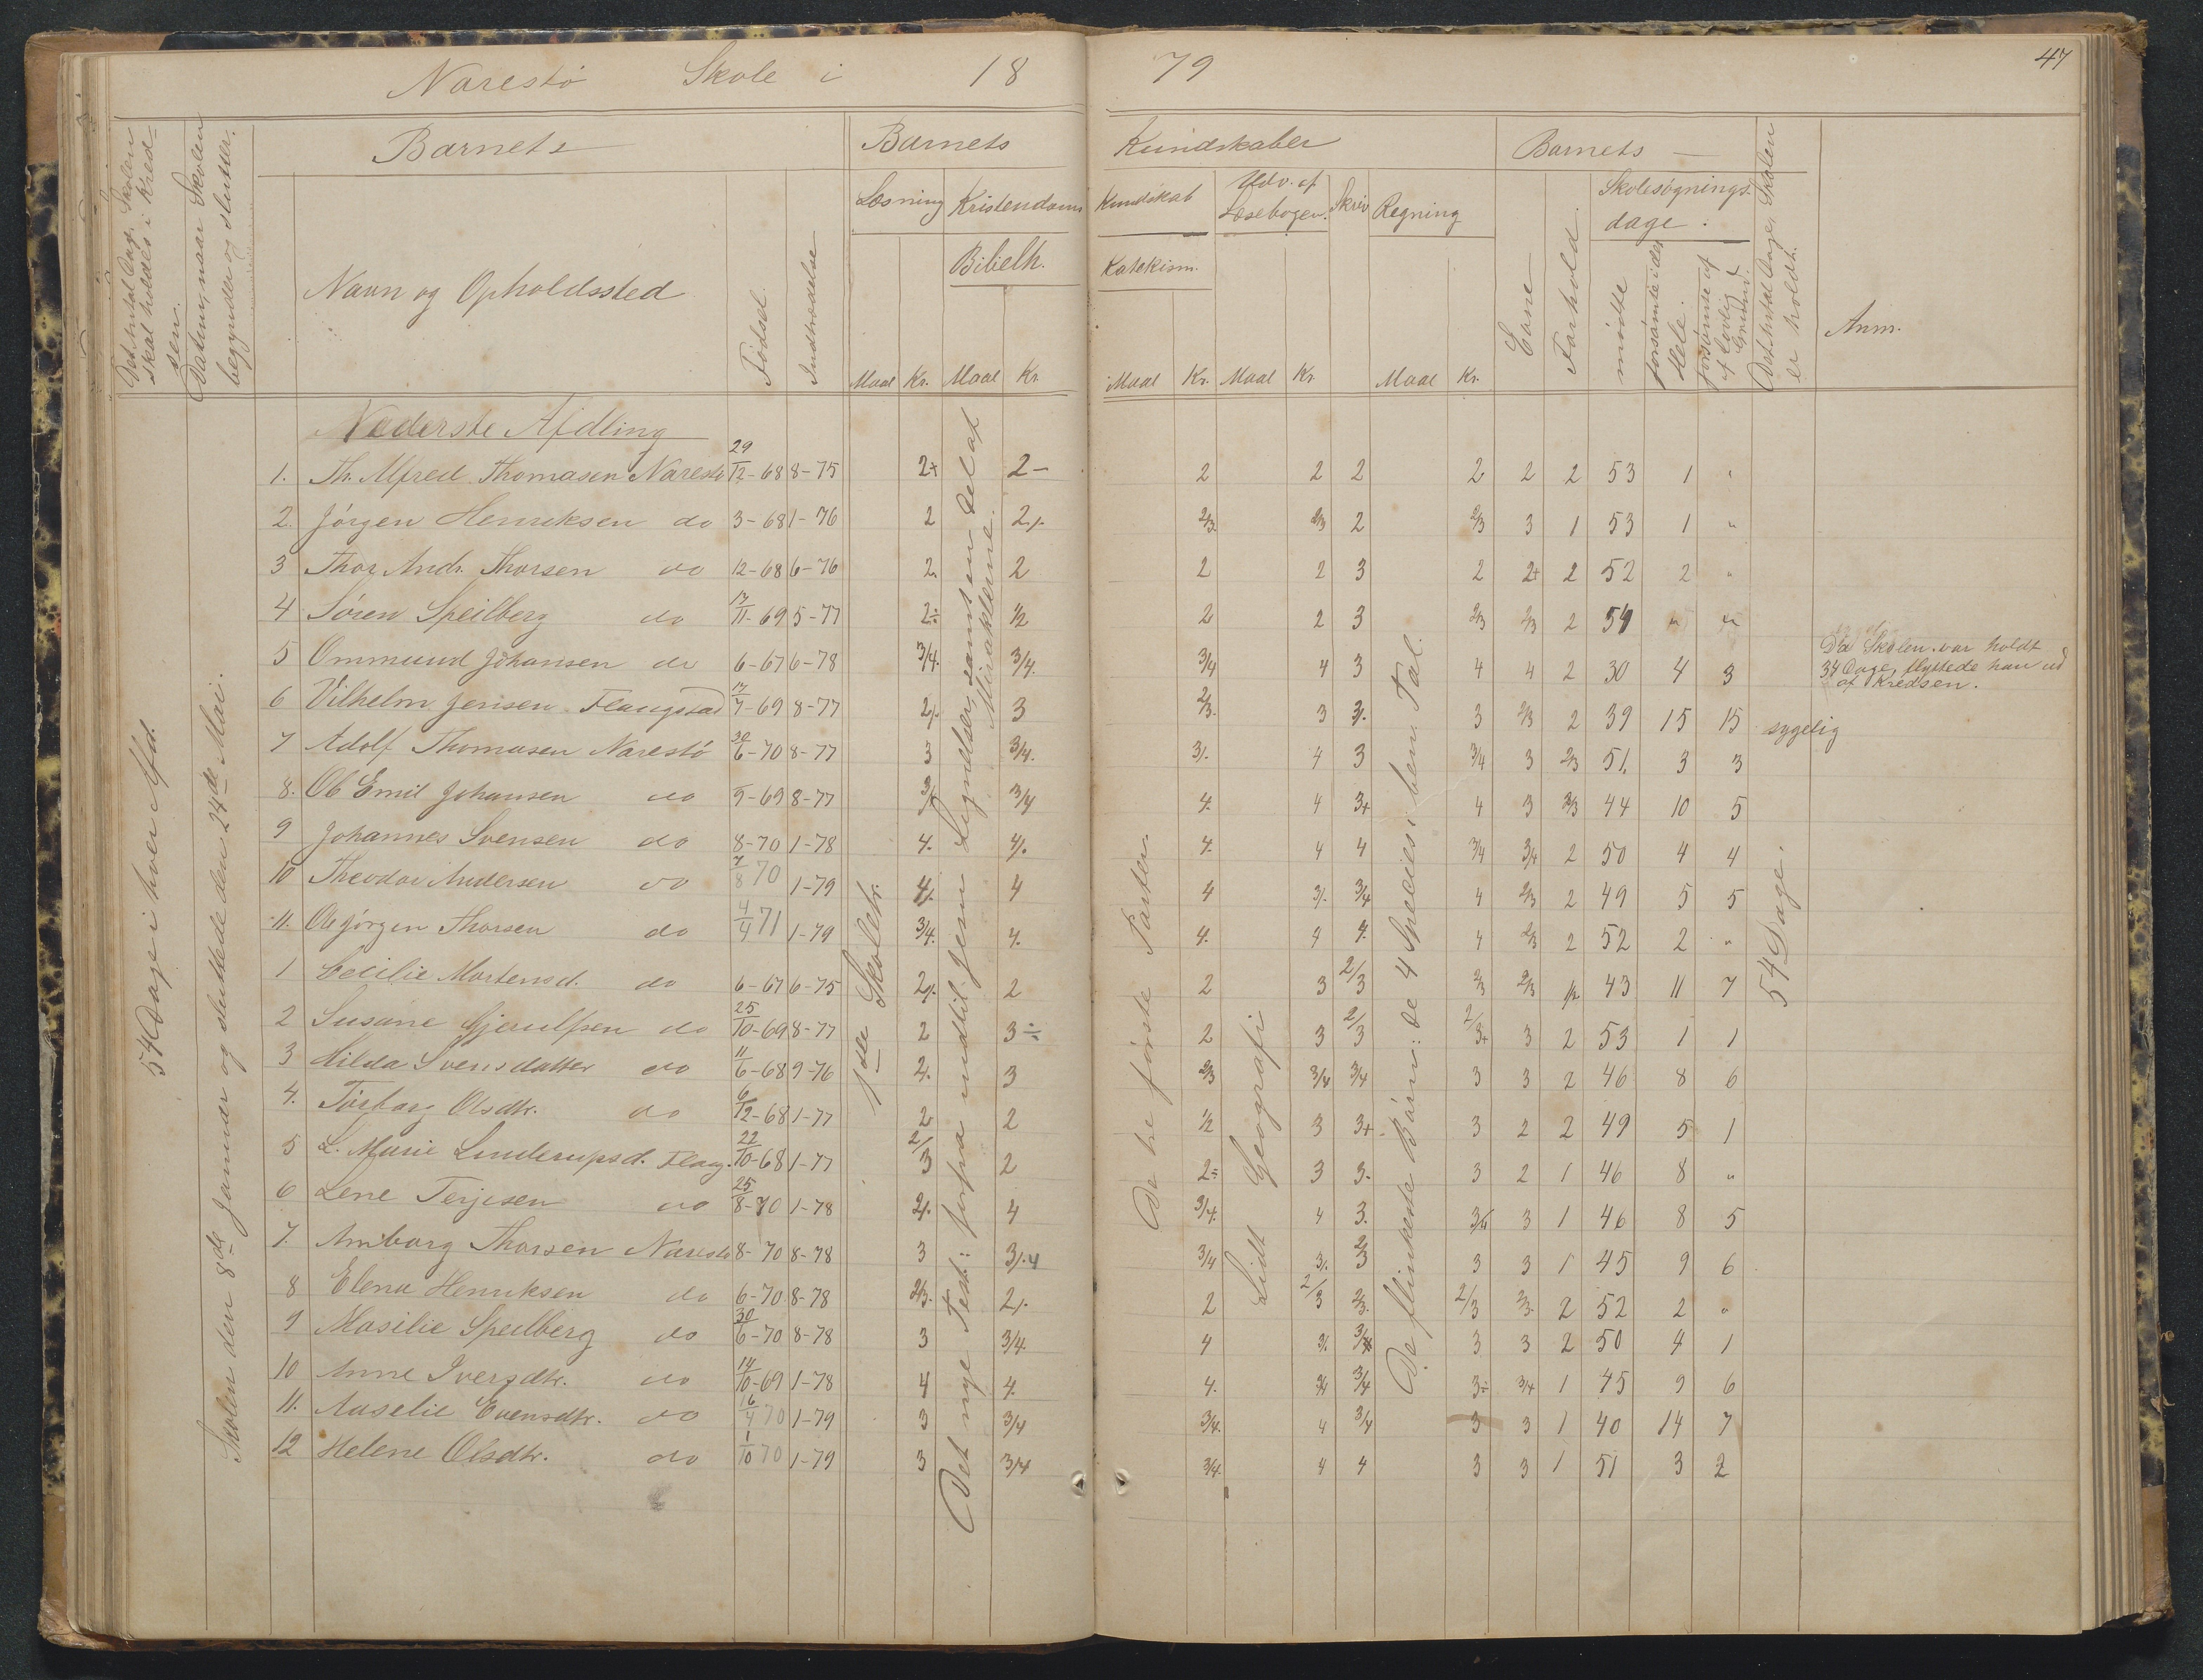 Narestø Skole i 18 79
47
Det Antal Dage, Skolen skal holdes i Kredsen.
Datum, naar Skolen begynder og slutter.
Barnets
Navn og Opholdssted
Fødsel.
Indtrædelse
Barnets Kundskaber
Læsning
Kristendoms Kundskab
Udv. af Læsebogen.
Skriv
Regning
Bibelh.
Katekism.
Maal Kr. Maal Kr. Maal Kr. Maal Kr. Maal Kr.
Barnets
Evne
Forhold.
Skolesøgnings-dage:
mødte
forsømte i det Hele.
forsømte af lovlig Grund.
Det Antal Dage, Skolen er holdt.
Anm.
54 Dage i hver Afd.
Skolen den 8de Januar og sluttede den 24de Mai.
Nederste Afdling
1. Th. Alfred Thomasen Narestø 29/12-68 8-75 2+ 2- 2 2 2 2 2 2 53 1 "
2. Jørgen Henriksen do 3-68 1-76 2 2/. 2/3. 2/3 2 2/3 3 1 53 1 "
3 Thor Andr. Thorsen do 12-68 6-76 2. 2 2 2 3 2 2+ 2 52 2 "
4 Søren Speilberg do 17/11-69 5-77 2÷ 1/2 2 2 3 2/3 2/3 2 54 " "
5 Ommund Johansen do 6-67 6-78 3/4. 3/4. 3/4 4 3 4 4 2 30 4 3 Da Skolen var holdt 34 Dage, flyttede han ud af Kredsen.
6 Vilhelm Jensen Flangstad 17/7-69 8-77 2/. 3 2/3. 3 3/. 3 2/3 2 39 15 15 sygelig
7 Adolf Thomasen Narestø 30/6-70 8-77 3 3/4. 3/. 4 3 3/4 3 2/3 51. 3 3
8. Ol. Emil Johansen do 9-69 8-77 3/. 3/4 4. 4 3+ 4 3 2/3 44 10 5
9 Johannes Svensen do 8-70 1-78 4. 4/. 4. 4 4 3/4 3/4 2 50 4 4
10 Theodor Andersen do 7/8 70 1-79 4/. 4 4 3/. 3/4 4 2/3 2 49 5 5
11. Ol. Jørgen Thorsen do 4/4 71 1-79 3/4. 4. 4. 4 4. 4 2/3 2 52 2 "
1 Cecilie Mortensd. do 6-67 6-75 2/. 2 2 3 2/3 2/3 2/3 1/2 43 11 7
2 Susane Gjerulfsen do 25/10-69 8-77 2 3÷ 2 3 2/3 2/3+ 3 2 53 1 1
3 Hilda Svensdatter do 11/6-68 9-76 2. 3 2/3 3/4 3/4 3 3 2 46 8 6
4. Torborg Olsdtr. do 6/12-68 1-77 2 2 1/2 3 3+ 3 2 2 49 5 1
5 L. Marie Linderupsd. Flang. 22/10-68 1-77 2/3 2 2÷ 3 3. 3 2 1 46 8 "
6 Lene Terjesen do 25/8-70 1-78 2/. 4 3/4. 4 3. 3/4 3 1 46 8 5
7. Amborg Thorsen Narestø 8-70 8-78 3 3/.4 3/4 3/. 2/3 3 3 1 45 9 6
8 Elena Henriksen do 6-70 8-78 2/3. 2/. 2 2/3 2/3. 2/3 2/3. 2 52 2 "
9 Masilie Speilberg do 30/6-70 8-78 3 3/4. 4 3/. 3/4 3 3 2 50 4 1
10 Anne Iversdtr. do 14/10-69 1-78 4 4. 4. 3/4 3/4 3÷ 3/4 1 45 9 6
11. Auselie Evensdtr. do 16/4 70 1-79 3 3/4 3/4. 4 3/4 3 3 1 40 14 7
12 Helene Olsdtr. do 1/10 70 1-79 3 3/4 3/4. 4 4 3 3 1 51 3 2
1ste Skoletr.
Det nye Test.: forfra indtil Jesu Lignelser, samt en Del af Miraklerne.
De tre første Parter.
Lidt Geografi
De flinkeste Børn: de 4 Species i ben. Tal.
54 Dage.